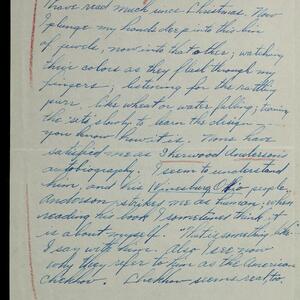 have read much since Christmas. Now
I plunge my hands deep into this bin
of jewels, now into that other; watching
their colors as they flash through my
fingers; listening for the rattling
purr, like wheat or water falling; turning
the slowly to learn the design
you know how it is. None have
satisfied me as Sherwood Anderson's
autobiography. I seem to understand
him, and his Winesburg Ohio people.
Anderson strikes me as human; when
reading his book I sometimes think it
is about myself. "That's something like"
I say with him. Also I see now
why they refer to him as the American
Chekhov. Chekhov seems real, too.